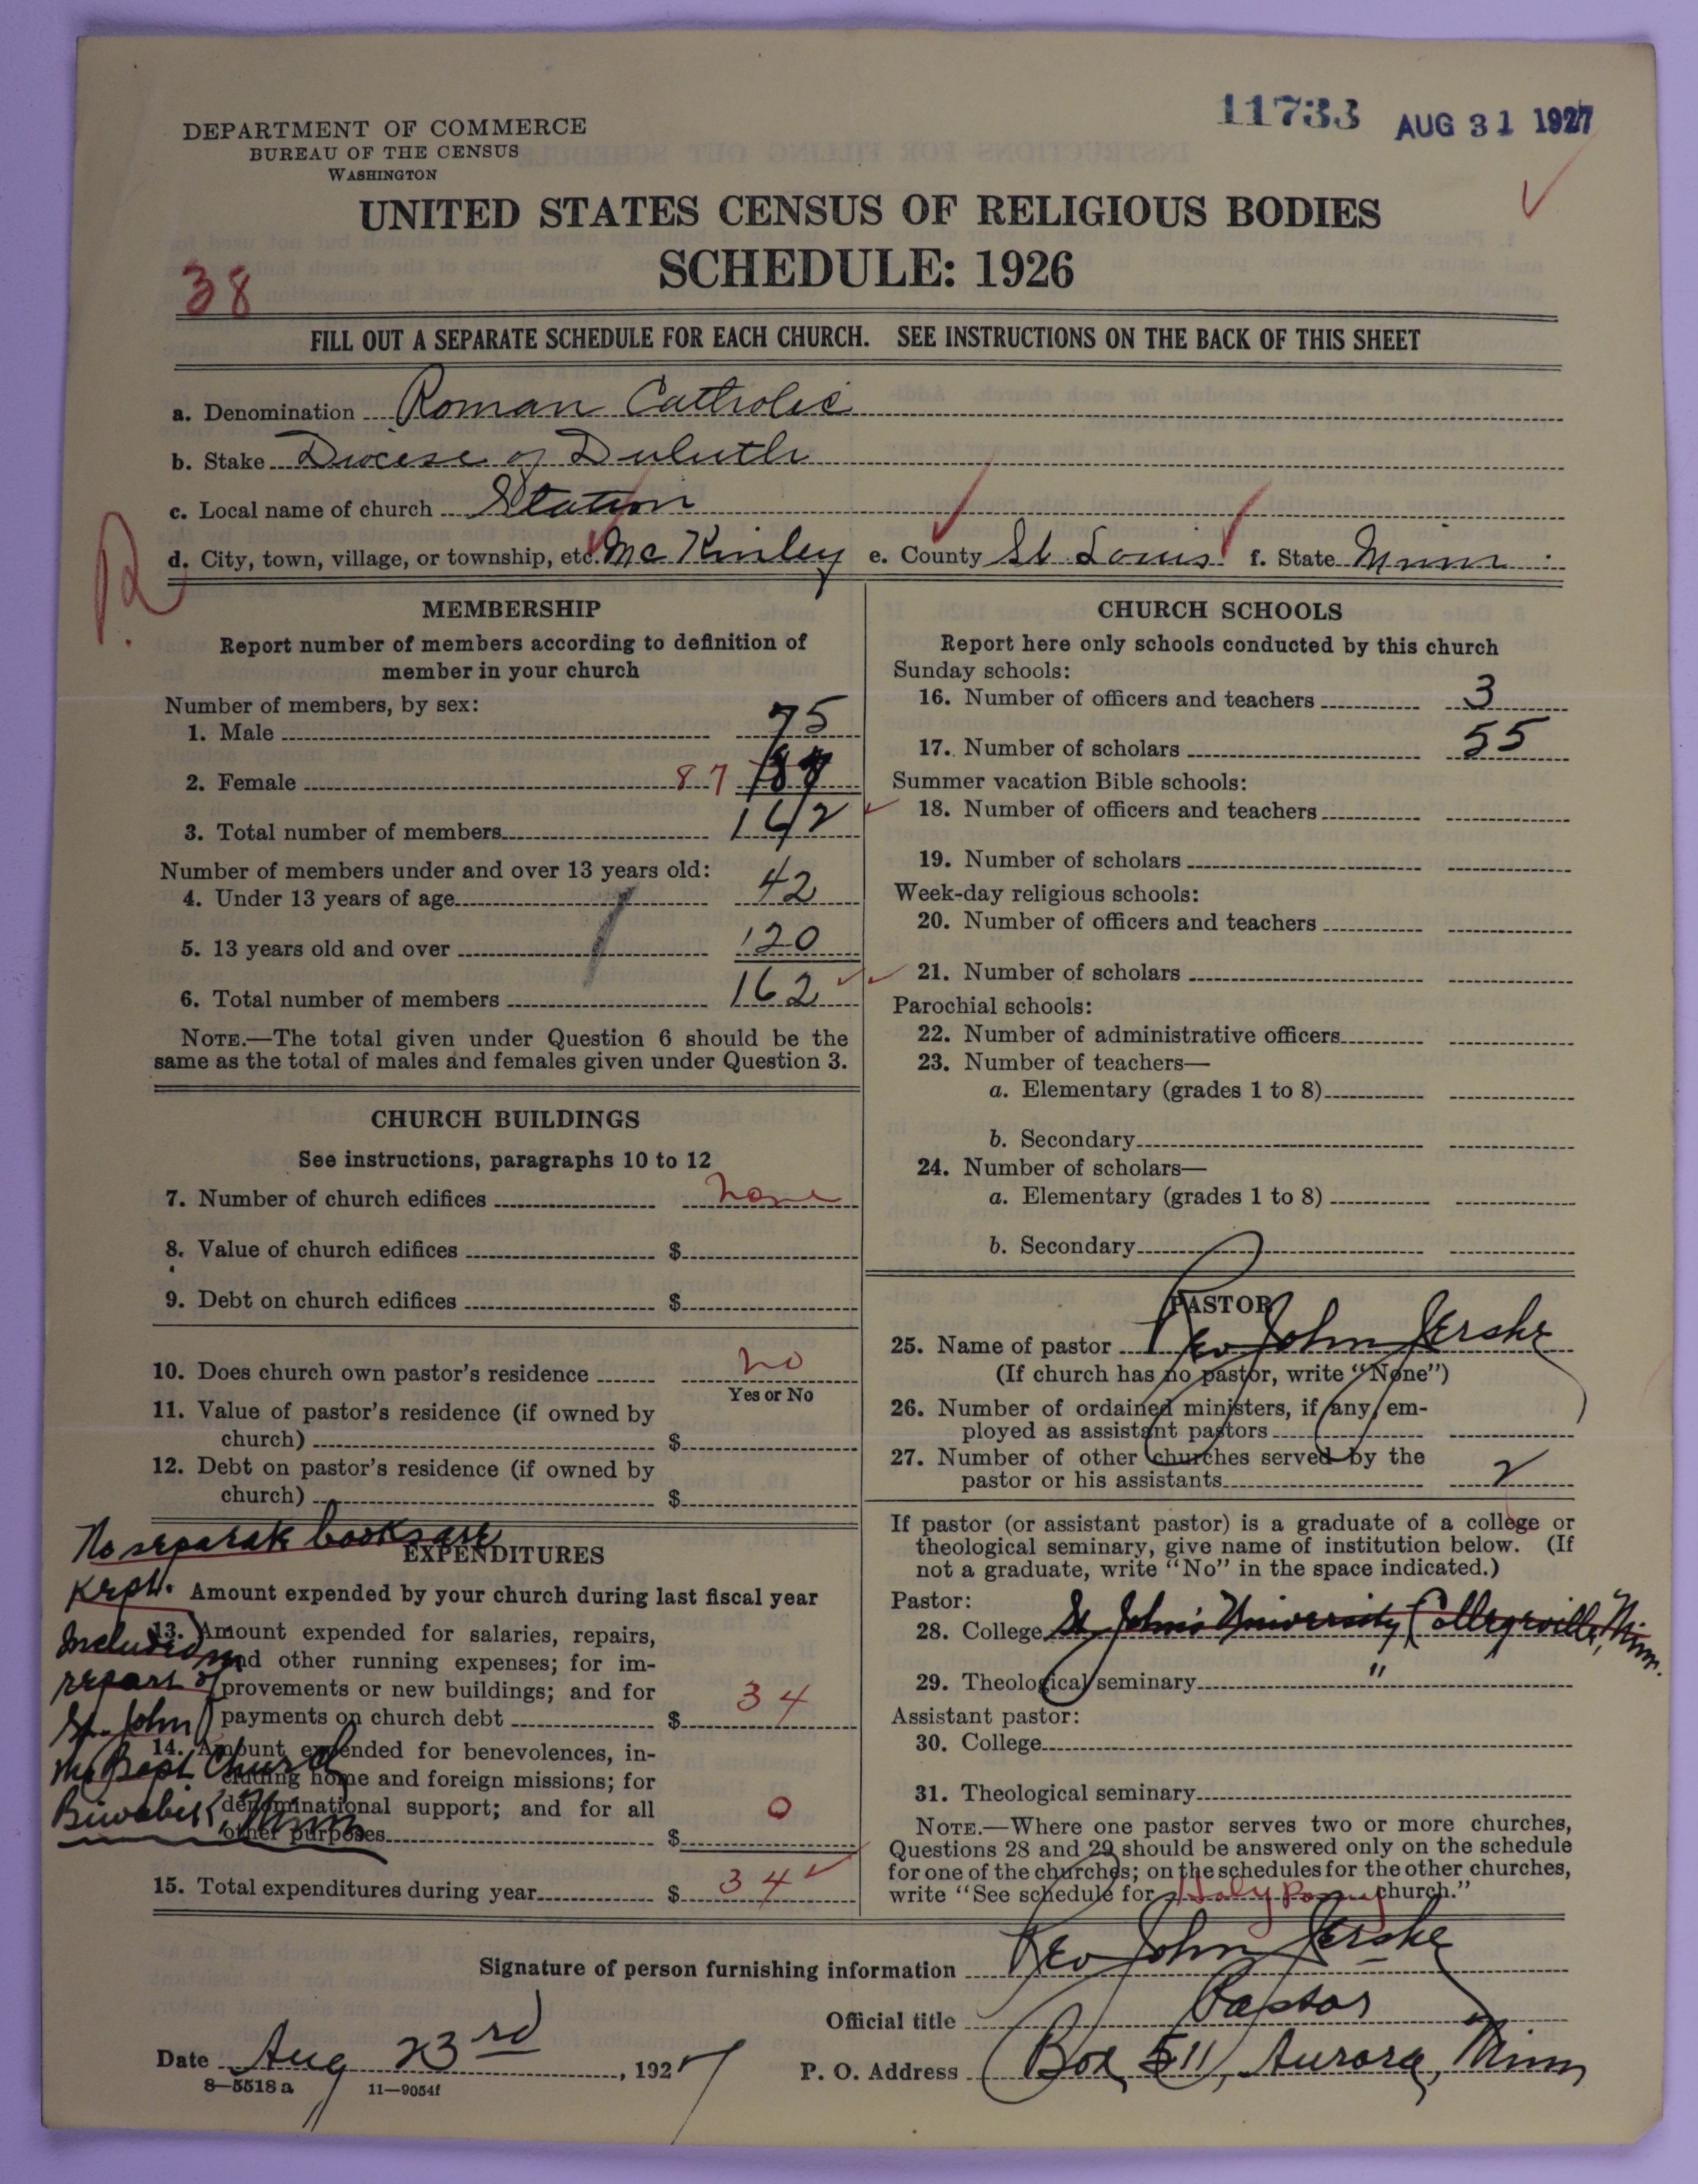 11733 AUG 31 1927
DEPARTMENT OF COMMERCE
BUREAU OF THE CENSUS
WASHINGTON
UNITED STATES CENSUS OF RELIGIOUS BODIES
SCHEDULE: 1926
38
FILL OUT A SEPARATE SCHEDULE FOR EACH CHURCH. SEE INSTRUCTIONS ON THE BACK OF THIS SHEET
a. Denomination Roman Catholic
b. Stake Diocese of Duluth
c. Local name of church Station
d. City, town, village, or township, etc. McKinley e. County St. Louis f. State Minn
R
MEMBERSHIP
Report number of members according to definition of
member in your church
Number of members, by sex:
1. Male 75
2. Female 87
3. Total number of members 162
Number of members under and over 13 years old:
4. Under 13 years of age 42
5. 13 years old and over 120
6. Total number of members 162
NOTE.—The total given under Question 6 should be the
same as the total of males and females given under Question 3.
CHURCH BUILDINGS
See instructions, paragraphs 10 to 12
7. Number of church edifices none
8. Value of church edifices $
9. Debt on church edifices $
10. Does church own pastor's residence no
Yes or No
11. Value of pastor's residence (if owned by
church) $
12. Debt on pastor's residence (if owned by
church) $
No separate books are
kept.
Included in
report of
St. John
the Bapt. Church
Biwabik, Minn
EXPENDITURES
Amount expended by your church during last fiscal year
13. Amount expended for salaries, repairs,
and other running expenses; for im-
provements or new buildings; and for
payments on church debt $ 34
14. Amount expended for benevolences, in-
cluding home and foreign missions; for
denominational support; and for all
other purposes $ 0
15. Total expenditures during year $ 34
CHURCH SCHOOLS
Report here only schools conducted by this church
Sunday schools:
16. Number of officers and teachers 3
17. Number of scholars 55
Summer vacation Bible schools:
18. Number of officers and teachers
19. Number of scholars
Week-day religious schools:
20. Number of officers and teachers
21. Number of scholars
Parochial schools:
22. Number of administrative officers
23. Number of teachers—
a. Elementary (grades 1 to 8)
b. Secondary
24. Number of scholars—
a. Elementary (grades 1 to 8)
b. Secondary
PASTOR
25. Name of pastor Rev John Jershe
(If church has no pastor, write "None")
26. Number of ordained ministers, if any, em-
ployed as assistant pastors
27. Number of other churches served by the
pastor or his assistants 2
If pastor (or assistant pastor) is a graduate of a college or
theological seminary, give name of institution below. (If
not a graduate, write "No" in the space indicated.)
Pastor:
28. College St. John's University Collegeville, Minn.
29. Theological seminary "
Assistant pastor:
30. College
31. Theological seminary
NOTE.—Where one pastor serves two or more churches,
Questions 28 and 29 should be answered only on the schedule
for one of the churches; on the schedules for the other churches,
write "See schedule for Holy church."
Signature of person furnishing information Rev John Jershe
Official title Pastor
Date Aug 23rd, 1927 P. O. Address Box 511, Aurora, Minn
8—5518a 11—9054f